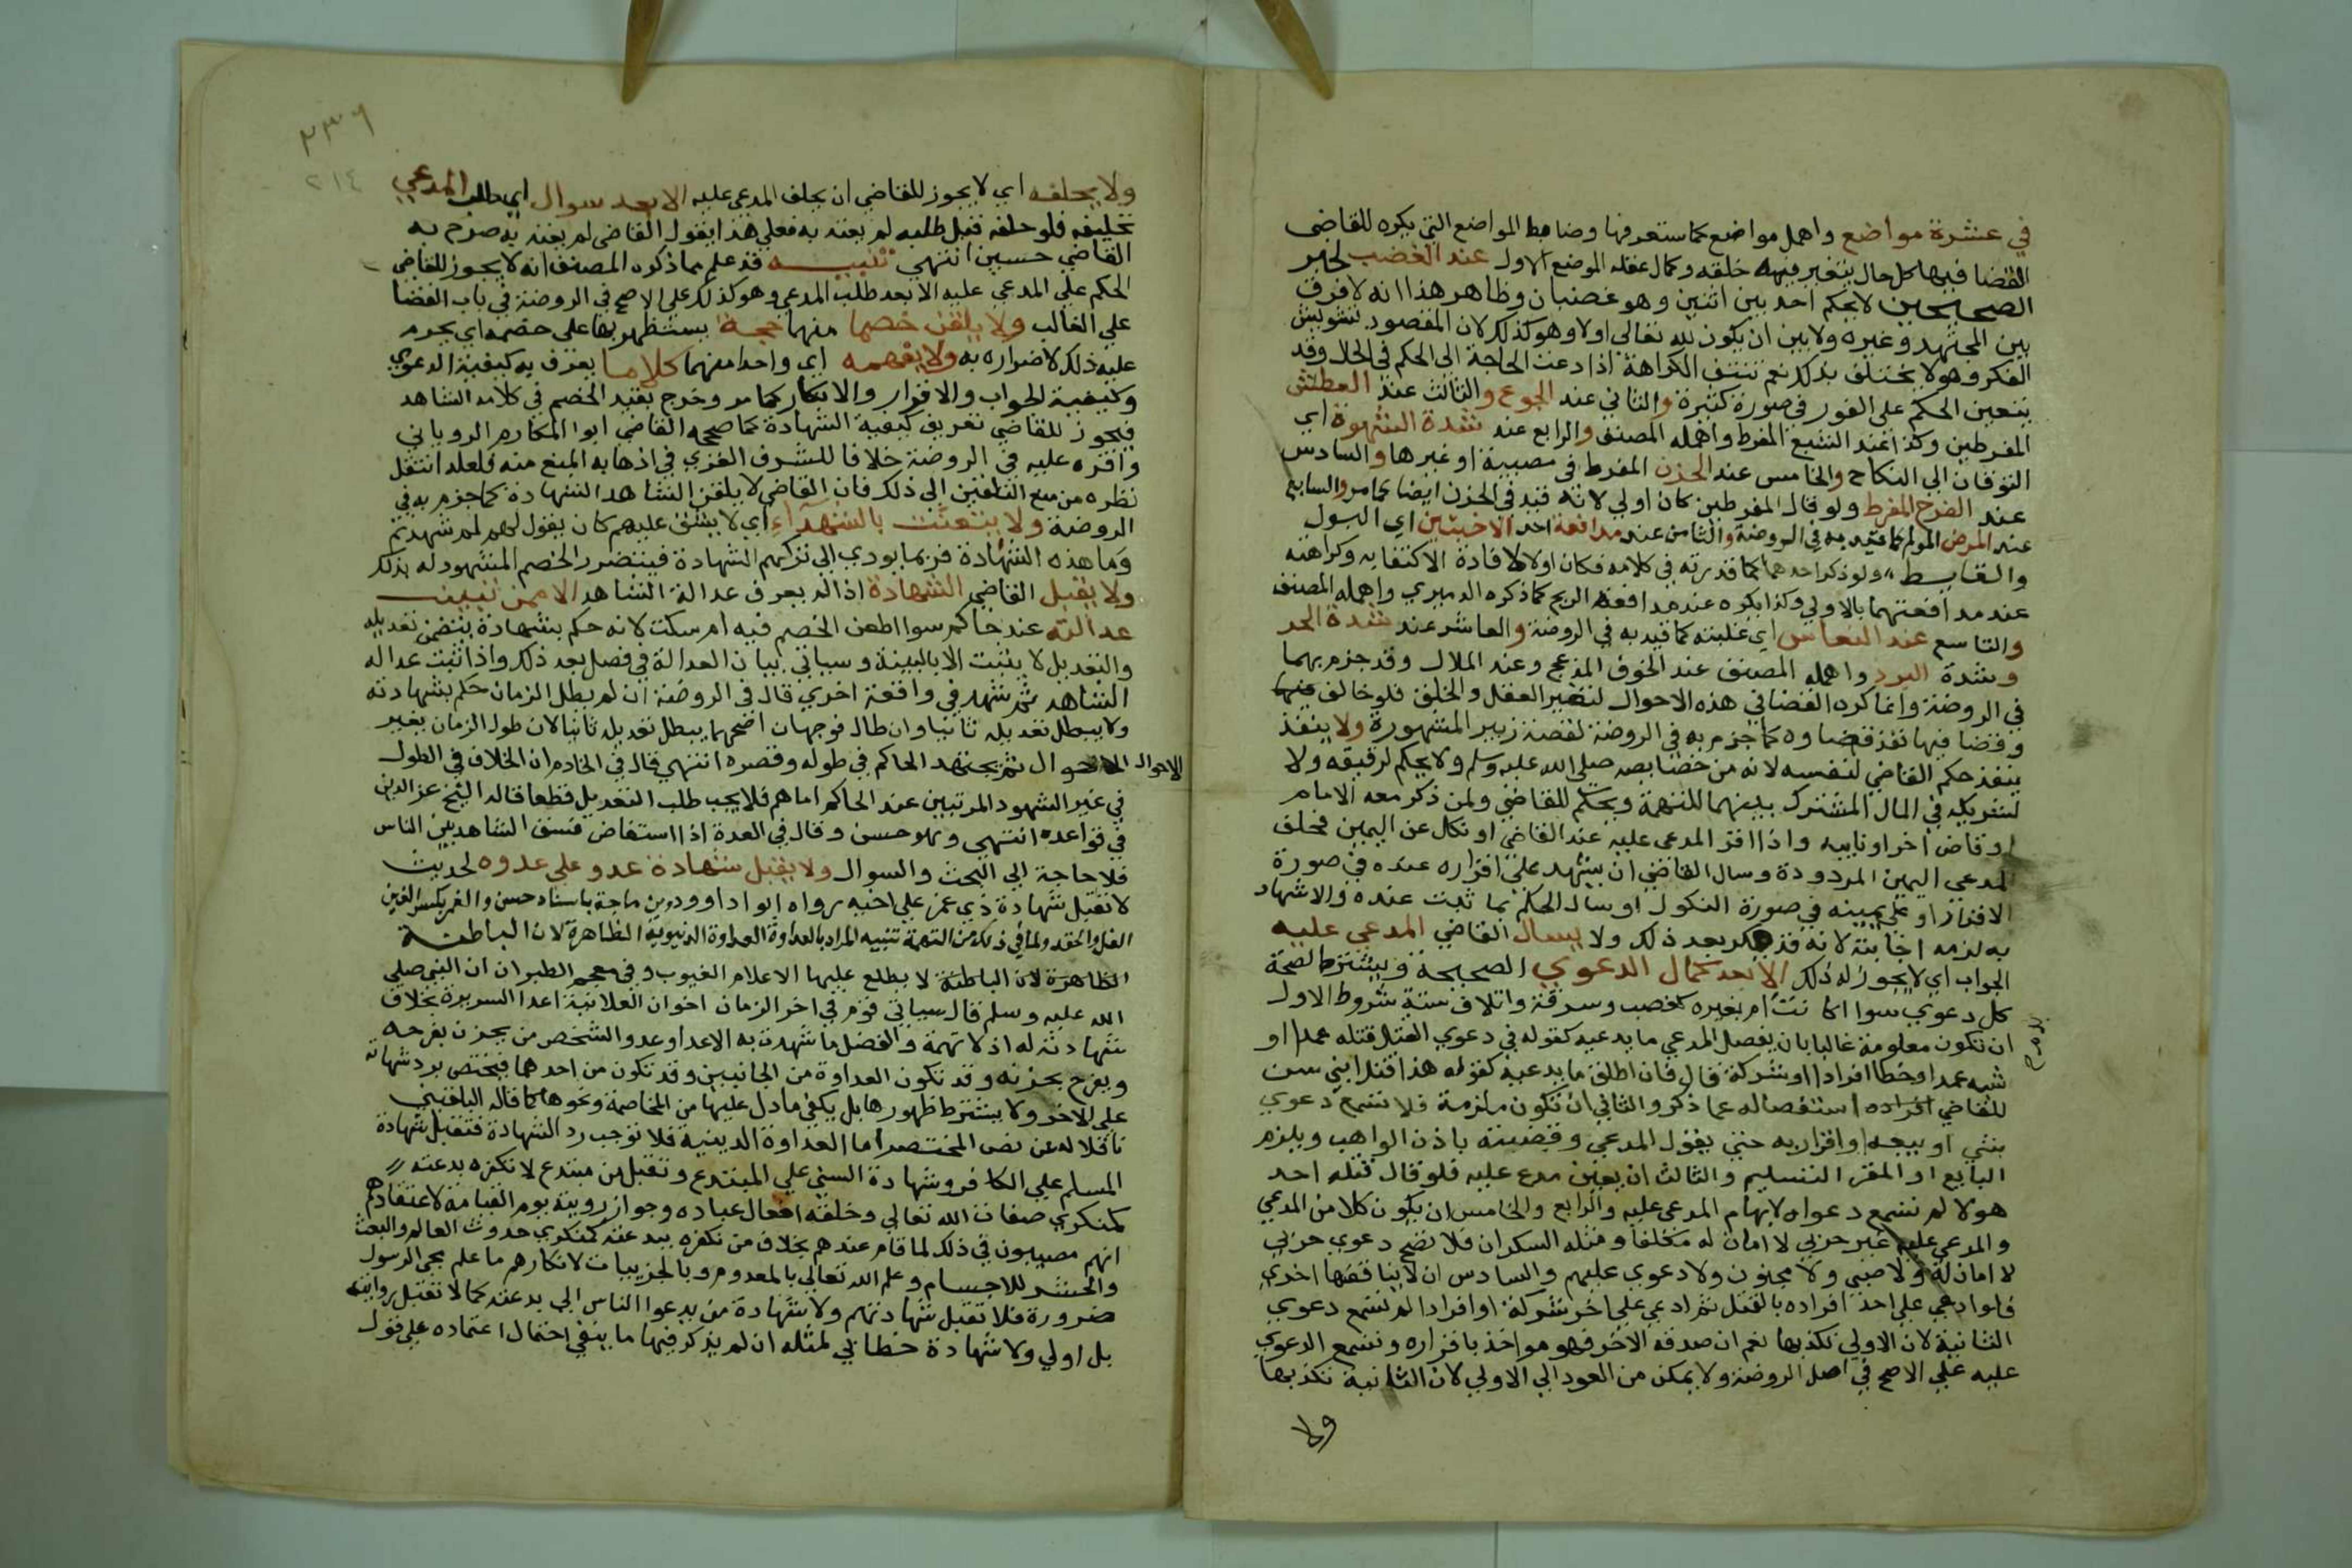 في عشرة مواضع واهمل مواضع كما ستعرفها وضابط المواضع التي يكره للقاضي
القضا فيها كل حال يتغير فيه خلقه وكمال عقله الموضع الاول عند الغضب لخبر
الصحيحين لا يحكم احد بين اثنين وهو غضبان وظاهر هذا انه لا فرق
بين المجتهد وغيره ولا بين ان يكون لله تعالي اولا وهو كذلك لان المقصود تشويش
الفكر وهو لا يختلف بذلك نعم تنتفي الكراهة اذا دعت الحاجة الى الحكم في الحال وقد
يتعين الحكم على الفور في صورة كثيرة والثاني عند الجوع والثالث عند العطش
المفرطين وكذا عند الشبع المفرط واهمله المصنف والرابع عند شدة الشهوة اي
التوقان الى النكاح والخامس عند الحزن المفرط في مصيبة او غيرها والسادس
عند الفرح المفرط ولو قال المفرطين كان اولي لانه قيد في الحزن ايضا كما مر والسابع
عند المرض المولم كما قيد به في الروضة والثامن عند مدافعة احد الاخبثين اي البول
والغايط ولو ذكر احدهما كما قدرته في كلامه فكان اولا لافادة الاكتفا به وكراهته
عند مدافعتهما بالاولي وكذا يكره عند مدافعة الريح كما ذكره الدميري واهمله المصنف
والتاسع عند النعاس اي غلبته كما قيد به في الروضة والعاشر عند شدة الحر
وشدة البرد واهمله المصنف عند الخوف المزعج وعند الملال وقد جزم بهما
في الروضة وانما كره القضا في هذه الاحوال لتغير العقل والخلق فلو خالف
وقضا فيها نفذ قضاوه كما جزم به في الروضة لقصة زبير المشهورة ولا ينفذ
ينفذ حكم القاضي لنفسه لانه من خصايصه صلي الله عليه وسلم ولا يحكم لرقيقه ولا
لشريكه في المال المشترك بينهما للتهمة ويحكم للقاضي ولمن ذكر معه الامام
او قاض اخر او نايبه واذا اقر المدعي عليه عند القاضي او نكل عن اليمين فحلف
المدعي اليمين المردودة وسال القاضي ان يشهد علي اقراره عنده في صورة
الاقرار او علي يمينه في صورة النكول او سال الحكم بما ثبت عنده والاشهاد
به لزمه اجابته لانه قد ينكر بعد ذلك ولا يسال القاضي المدعي عليه
الجواب اي لا يجوز له ذلك الا بعد كمال الدعوي الصحيحة ويشترط لصحة
كل دعوي سوا اكانت ام بغيره كغصب وسرقة واتلاف ستة شروط الاول
بدم صح
ان تكون معلومة غالبا بان يفصل المدعي ما يدعيه كقوله في دعوي القتل قتله عمدا او
شبه عمد او خطا افرادا او شركة قال فان اطلق ما يدعيه كقوله هذا قتل ابني سن
للقاضي استفصاله عما ذكر والثاني ان تكون ملزمة فلا تسمع دعوي
بشي او بيعه او اقرار به حتى يقول المدعي وقبضته باذن الواهب ويلزم
البايع او المقر التسليم والثالث ان يعين مدع عليه فلو قال قتله احد
هولا لم تسمع دعواه لابهام المدعي عليه والرابع والخامس ان يكون كلا من المدعي
والمدعي عليه غير حربي لا امان له مكلفا ومثله السكران فلا تصح دعوي حربي
لا امان له ولا صبي ولا مجنون ولا دعوي عليهم والسادس ان لا يناقضها اخري
فلو ادعي علي احد افراده بالقتل ثم ادعي علي اخر شركة او افرادا لم تسمع دعوي
الثانية لان الاولي تكذبها نعم ان صدقه الاخر فهو مواخذ باقراره وتسمع الدعوي
عليه علي الاصح في اصل الروضة ولا يمكن من العود الي الاولي لان الثانية تكذبها
ولا
٢٣٦
٢١٤
ولا يحلفه اي لا يجوز للقاضي ان يحلف المدعي عليه الا بعد سوال اي طلب المدعي
تحليفه فلو حلفه قبل طلبه لم يعتد به فعلي هذا يقول القاضي لم يعتد به صرح به
القاضي حسين انتهي تنبيه قد علم مما ذكره المصنف انه لا يجوز للقاضي
الحكم علي المدعي عليه الا بعد طلب المدعي وهو كذلك علي الاصح في الروضة في باب القضا
علي الغايب ولا يلقن خصما منهما حجة يستظهر بها على خصمه اي يحرم
عليه ذلك لاضراره به ولا يفهمه اي واحدا منهما كلاما يعرف به كيفية الدعوي
وكيفية الجواب والاقرار والانكار كما مر وخرج بقيد الخصم في كلامه الشاهد
فيجوز للقاضي تعريف كيفية الشهادة كما صححه القاضي ابوا المكارم الروياني
واقره عليه في الروضة خلافا للشرف الغزي في اذهابه المنع منه فلعله انتقل
نظره من منع التلقين الي ذلك فان القاضي لا يلقن الشاهد الشهادة كما جزم به في
الروضة ولا يتعنت بالشهداء اي لا يشق عليهم كان يقول لهم لم شهدتم
وما هذه الشهادة فربما يودي الي تركهم الشهادة فيتضرر الخصم المشهود له بذلك
ولا يقبل القاضي الشهادة اذا لم يعرف عدالة الشاهد الا ممن تثبت
عدالته عند حاكم سوا اطعن الخصم فيه ام سكت لانه حكم بشهادة يتضمن تعديله
والتعديل لا يثبت الا بالبينة وسياتي بيان العدالة في فصل بعد ذلك واذا ثبت عدالة
الشاهد ثم شهد في واقعة اخري قال في الروضة ان لم يطل الزمان حكم بشهادته
ولا يطلب تعديله ثانيا وان طال فوجهان اصحهما يطلب تعديله ثانيا لان طول الزمان يغير
الاحوال ثم يجتهد الحاكم في طوله وقصره انتهي قال في الخادم ان الخلاف في الطول
في غير الشهود المرتبين عند الحاكم اما هم فلا يجب طلب التعديل قطعا قاله الشيخ عز الدين
في قواعده انتهي وهو حسن وقال في العدة اذا استفاض فسق الشاهد بين الناس
فلا حاجة الي البحث والسوال ولا يقبل شهادة عدو علي عدوه لحديث
لا تقبل شهادة ذي غمر علي اخيه رواه ابو اداوود وبن ماجة باسناد حسن والغمر بكسر الغين
الغل والحقد ولما في ذلك من التهمة تنبيه المراد بالعداوة العداوة الدنيوية الظاهرة لان الباطنة
الظاهرة لان الباطنة لا يطلع عليها الا علام الغيوب وفي معجم الطبراني ان النبي صلي
الله عليه وسلم قال سياتي قوم في اخر الزمان اخوان العلانية اعدا السريرة بخلاف
شهادته له اذ لا تهمة والفضل ما شهدت به الاعدا وعدو الشخص من يحزن بفرحه
ويفرح بحزنه وقد تكون العداوة من الجانبين وقد تكون من احدهما فيختص برد شهادته
علي الاخر ولا يشترط ظهورها بل يكفي ما دل عليها من المخاصمة ونحوها كما قاله البلقيني
ناقلا له عن نص المختصر اما العداوة الدينية فلا توجب رد الشهادة فتقبل شهادة
المسلم علي الكافر وشهادة السني علي المبتدع وتقبل من مبتدع لا نكفره بدعته
كمنكري صفات الله تعالي وخلقه افعال عباده وجواز رويته يوم القيامة لاعتقادهم
انهم مصيبون في ذلك لما قام عندهم بخلاف من نكفره ببدعته كمنكري حدوث العالم والبعث
والحشر للاجسام وعلم الله تعالي بالمعدوم وبالجزييات لانكارهم ما علم مجي الرسول
ضرورة فلا تقبل شهادتهم ولا شهادة من يدعوا الناس الي بدعته كما لا تقبل روايته
بل اولي ولا شهادة خطابي لمثله ان لم يذكر فيها ما ينفي احتمال اعتماده علي قول